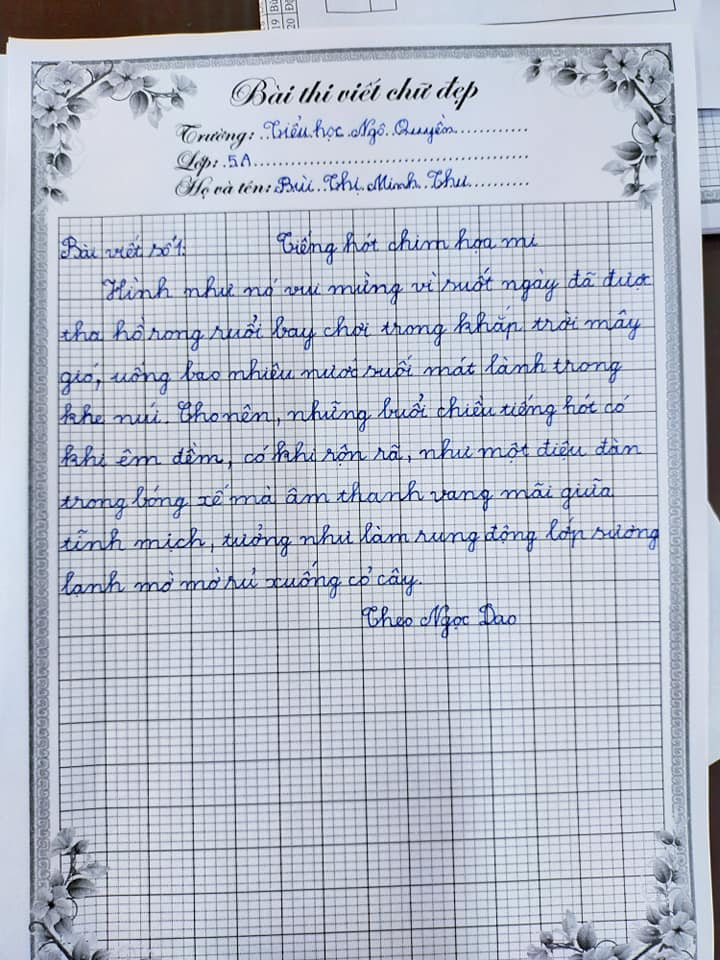 19 Bù
20 Đ
Bài thi viết chữ đẹp
Trường: Tiểu học Ngô Quyền
Lớp: 5A
Họ và tên: Bùi Thị Minh Thư
Bài viết số 1: Tiếng hót chim họa mi
Hình như nó vui mừng vì suốt ngày đã được
tha hồ rong ruổi bay chơi trong khắp trời mây
gió, uống bao nhiêu nước suối mát lành trong
khe núi. Cho nên, những buổi chiều tiếng hót có
khi êm đềm, có khi rộn rã, như một điệu đàn
trong bóng xế mà âm thanh vang mãi giữa
tĩnh mịch, tưởng như làm rung động lớp sương
lạnh mờ mờ rủ xuống cỏ cây.
Theo Ngọc Dao